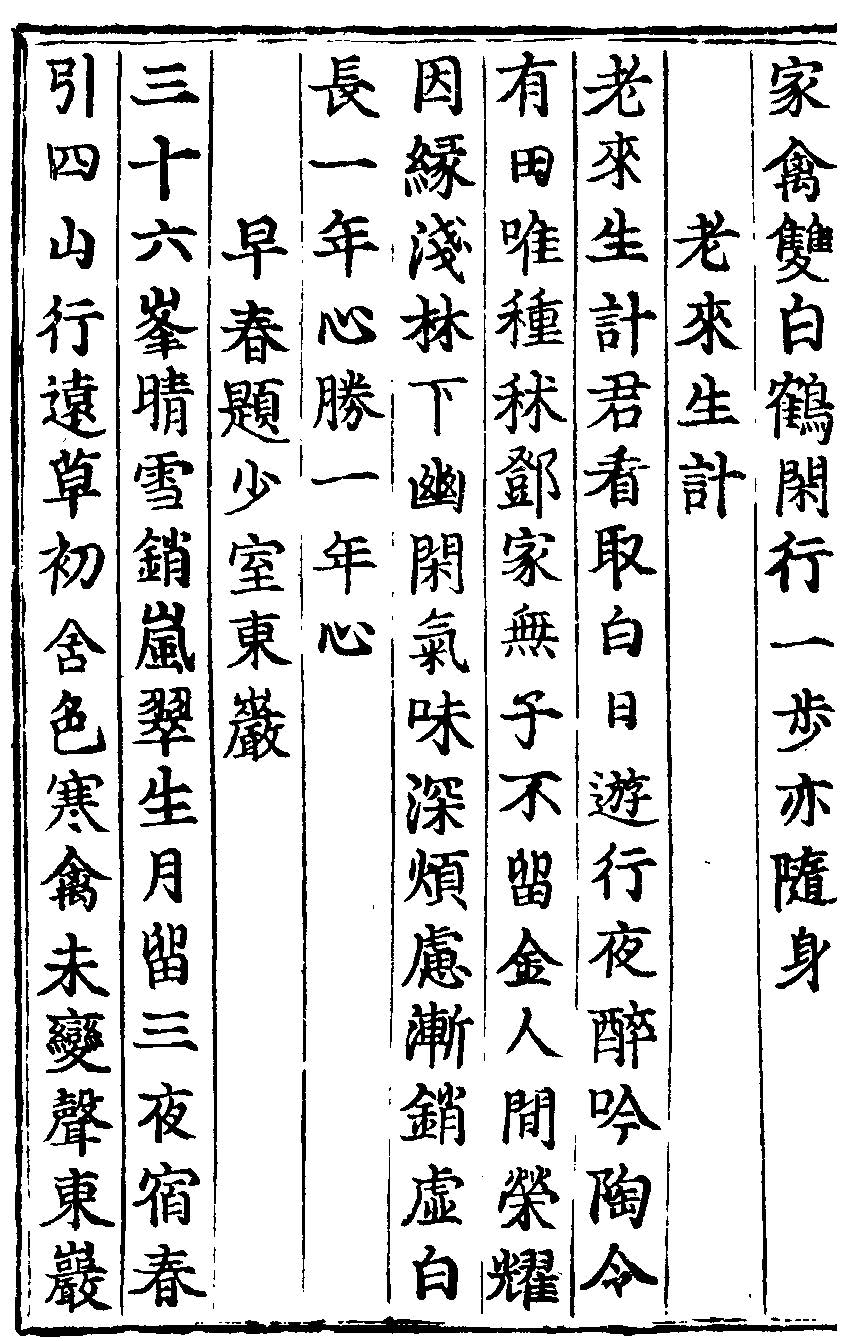 家禽雙白鶴閑行一步亦隨身
老來生計
老來生計君看取白日遊行夜醉吟陶令
有田唯種秫鄧家無子不留金人間榮耀
因緣淺林下幽閑氣味深煩慮漸銷虛白
長一年心勝一年心
早春題少室東巖
三十六峯晴雪銷嵐翠生月留三夜宿春
引四山行遠草初含色寒禽未變聲東巖